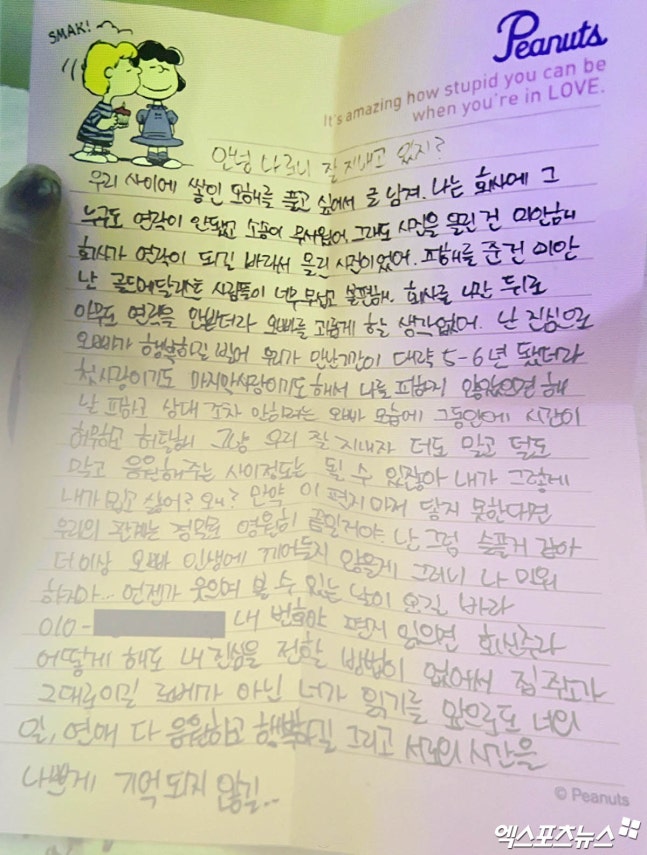 SMAK!
Peanuts
It's amazing how stupid you can be
when you're in LOVE.
안녕 나 론이 잘 지내고 있지?
우리 사이에 쌓인 오해를 풀고 싶어서 글 남겨. 나는 회사에 그
누구도 연락이 안됐고 소송이 무서웠어. 그래도 사진을 올린 건 미안해
회사가 연락이 되길 바라서 올린 사진이었어. 피해를 준건 미안
난 골드메달리스트 사람들이 너무 무섭고 불편해. 회사를 나간 뒤로
아무도 연락을 안받더라 오빠를 괴롭게 할 생각없어. 난 진심으로
오빠가 행복하길 빌어 우리가 만난기간이 대략 5-6년 됐더라
첫사랑이기도 마지막사랑이기도 해서 나를 피하지 않았으면 해
날 피하고 상대 조차 안하려는 오빠 모습에 그동안에 시간이
허무하고 허탈해 그냥 우리 잘 지내자 더도 말고 덜도
말고 응원해주는 사이정도는 될 수 있잖아 내가 그렇게
내가 밉고 싫어? 왜? 만약 이 편지마저 닿지 못한다면
우리의 관계는 정말로 영원히 끝일거야. 난 그럼 슬플거 같아
더이상 오빠 인생에 끼어들지 않을게 그러니 나 미워
하지마.. 언젠가 웃으며 볼 수 있는 날이 오길 바라
010- 내 번호야 편지 읽으면 회신주라
어떻게 해도 내 진심을 전할 방법이 없어서 집 주소가
그대로이길 로베가 아닌 너가 읽기를 앞으로도 너의
일, 연애 다 응원하고 행복하길 그리고 서로의 시간을
나쁘게 기억 되지 않길..
© Peanuts
엑스포츠뉴스